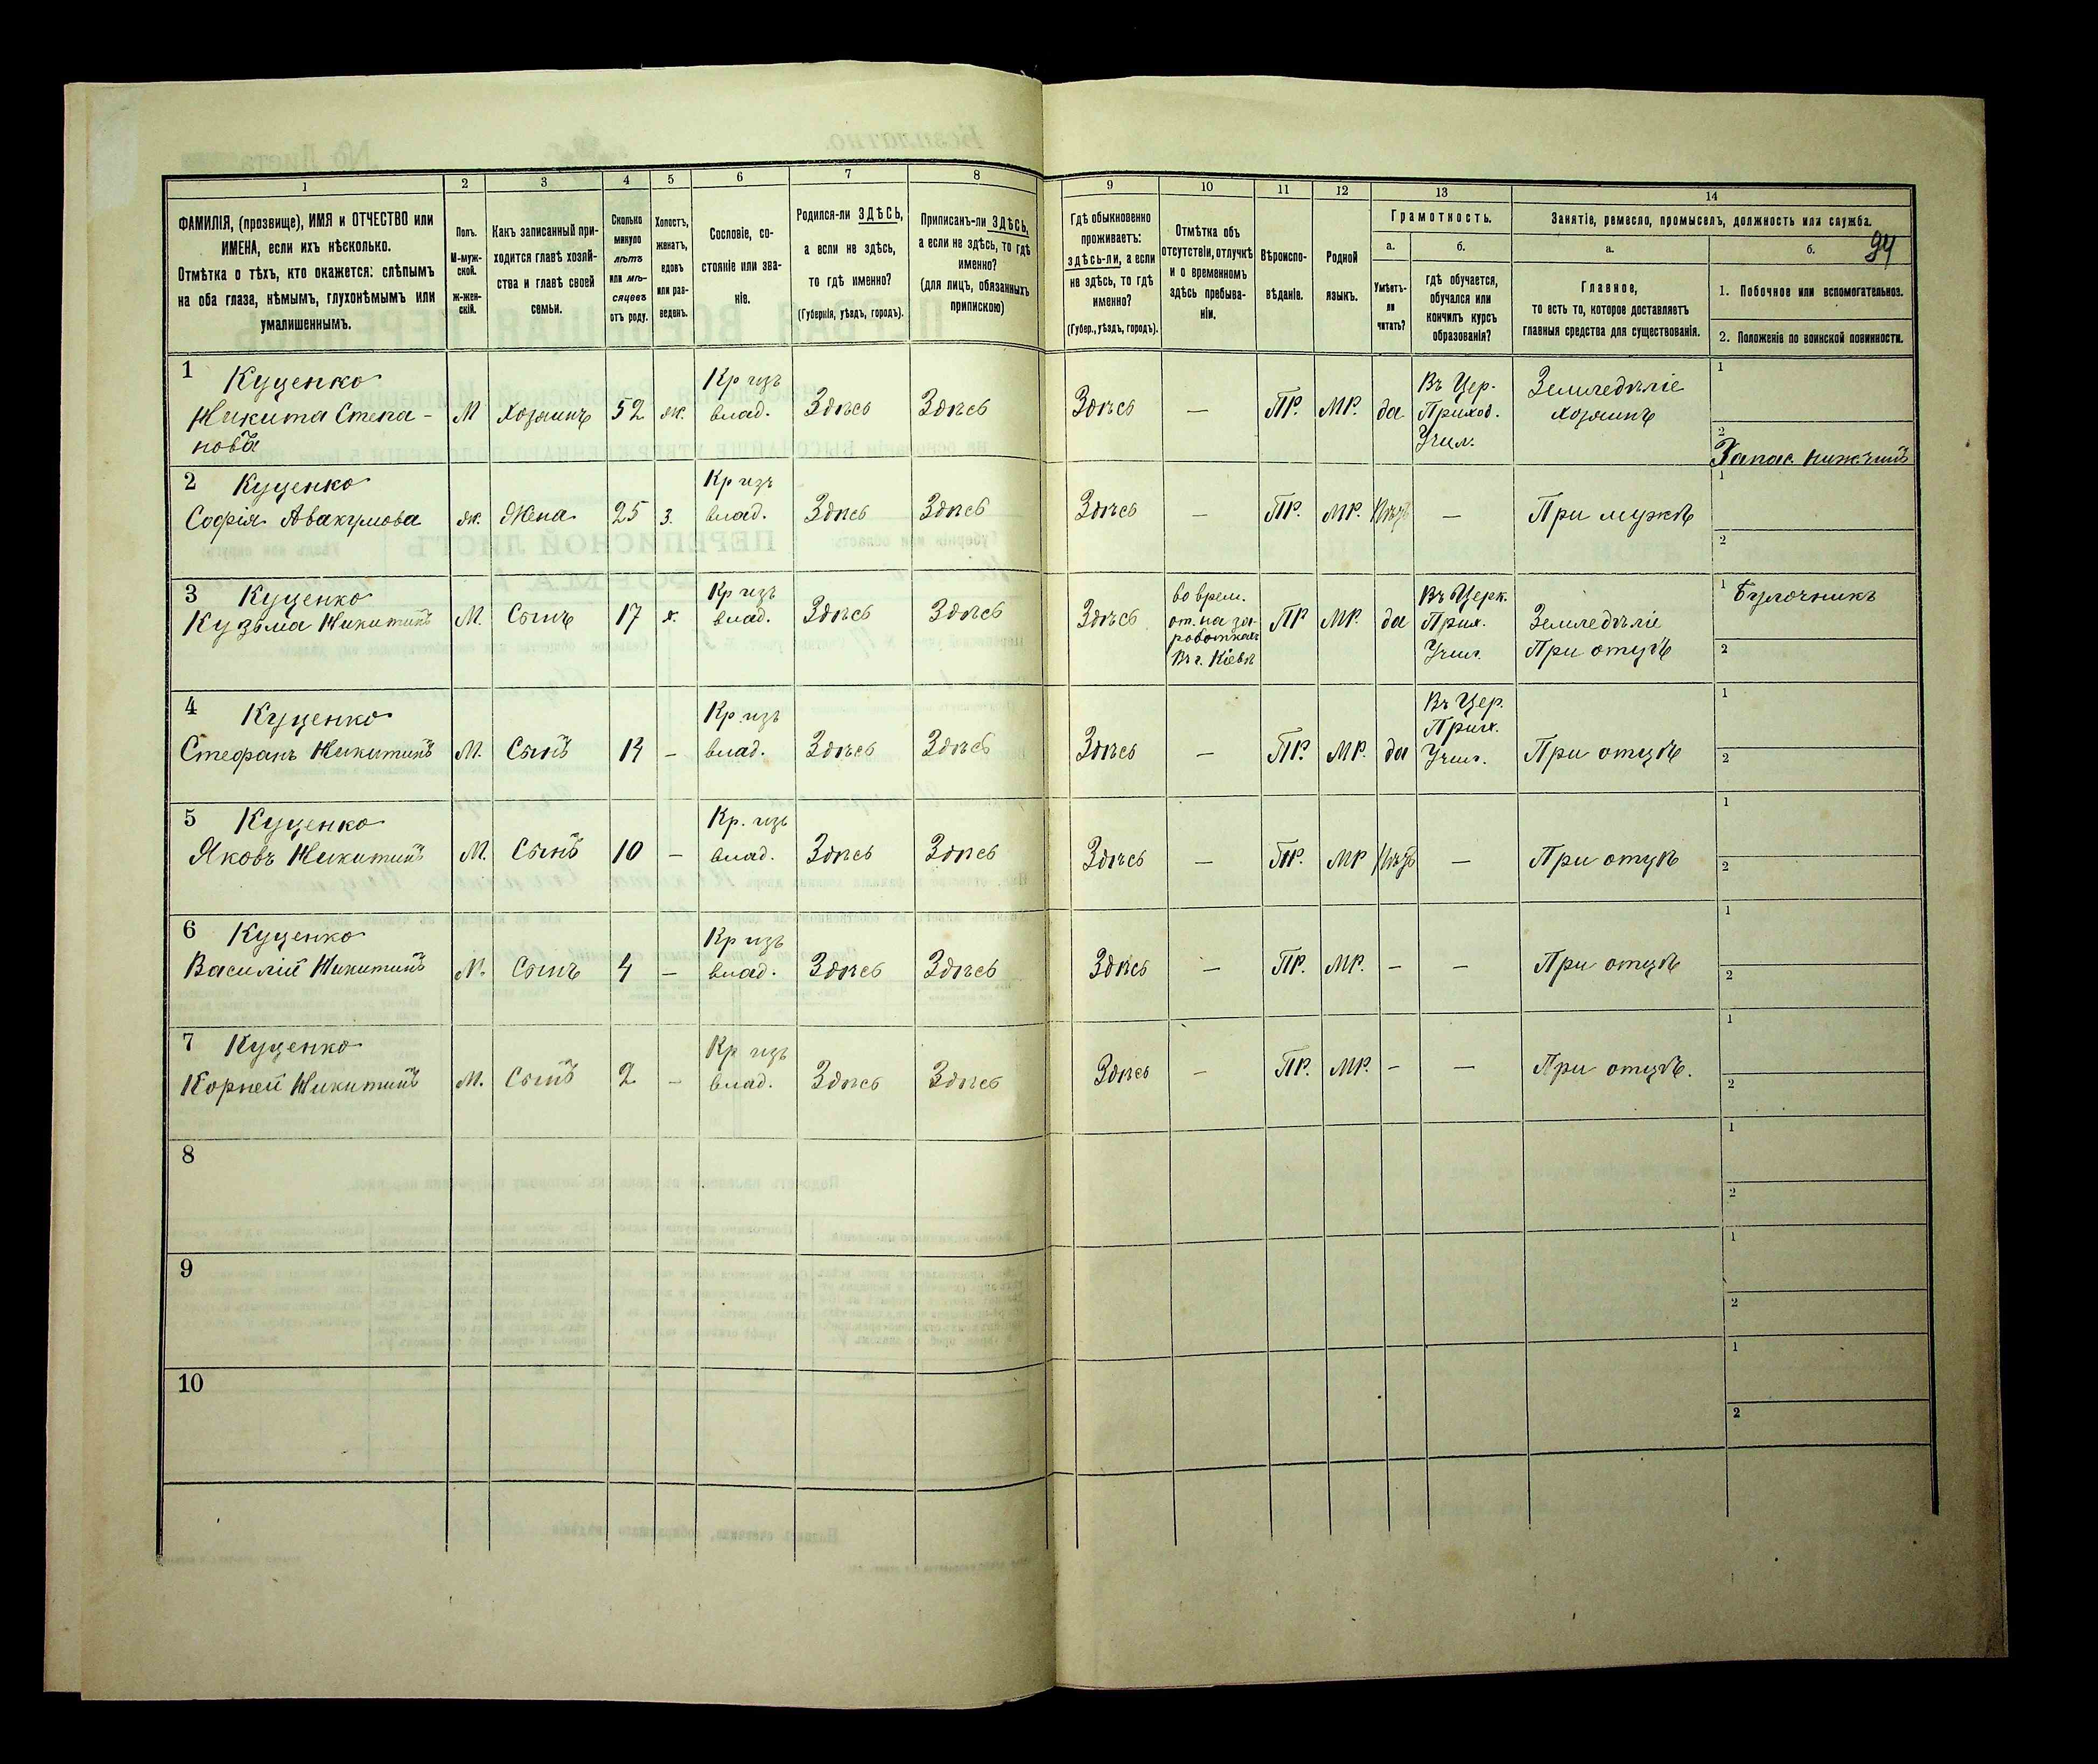 94
1 2 3 4 5 6 7 8 9 10 11 12 13 14
ФАМИЛІЯ, (прозвище), ИМЯ и ОТЧЕСТВО или
ИМЕНА, если ихъ нѣсколько.
Отмѣтка о тѣхъ, кто окажется: слѣпымъ
на оба глаза, нѣмымъ, глухонѣмымъ или
умалишеннымъ.
Полъ.
М-муж-
ской.
Ж-жен-
скій.
Какъ записанный при-
ходится главѣ хозяй-
ства и главѣ своей
семьи.
Сколько
минуло
лѣтъ
или мѣ-
сяцевъ
отъ роду.
Холостъ,
женатъ,
вдовъ
или раз-
веденъ.
Сословіе, со-
стояніе или зва-
ніе.
Родился-ли ЗДѢСЬ,
а если не здѣсь,
то гдѣ именно?
(Губернія, уѣздъ, городъ).
Приписанъ-ли ЗДѢСЬ,
а если не здѣсь, то гдѣ
именно?
(для лицъ, обязанныхъ
припискою)
Гдѣ обыкновенно
проживаетъ:
здѣсь-ли, а если
не здѣсь, то гдѣ
именно?
(Губер., уѣздъ, городъ).
Отмѣтка объ
отсутствіи, отлучкѣ
и о временномъ
здѣсь пребыва-
ніи.
Вѣроиспо-
вѣданіе.
Родной
языкъ.
Грамотность.
а.
Умѣетъ-
ли
читать?
б.
гдѣ обучается,
обучался или
кончилъ курсъ
образованія?
Занятіе, ремесло, промыселъ, должность или служба.
а.
Главное,
то есть то, которое доставляетъ
главныя средства для существованія.
б.
1. Побочное или вспомогательное.
2. Положеніе по воинской повинности.
1 Куценко
Никита Степа-
новъ
М Хозяинъ 52 ж.
Кр изъ
влад.
Здѣсь Здѣсь Здѣсь — ПР. МР. да
Въ Цер.
Приход.
Учил.
Земледѣліе
хозяинъ
1
2
Запас. ниж. чинъ
2 Куценко
Софія Авакумова
ж. Жена 25 з.
Кр изъ
влад.
Здѣсь Здѣсь Здѣсь — ПР. МР. — При мужѣ
1
2
3 Куценко
Кузьма Никитинъ
М. Сынъ 17 х.
Кр изъ
влад.
Здѣсь Здѣсь Здѣсь
во врем.
от. на за-
роботкахъ
Въ г. Кіевѣ
ПР МР. да
Въ Церк.
Прих.
Учил.
Земледѣліе
При отцѣ
1 Булочникъ
2
4 Куценко
Стефанъ Никитинъ
М. Сынъ 14 —
Кр. изъ
влад.
Здѣсь Здѣсь Здѣсь — ПР. МР. да
Въ Цер.
Прих.
Учил.
При отцѣ
1
2
5 Куценко
Яковъ Никитинъ
М. Сынъ 10 —
Кр. изъ
влад.
Здѣсь Здѣсь Здѣсь — ПР. МР — При отцѣ
1
2
6 Куценко
Василій Никитинъ
М. Сынъ 4 —
Кр изъ
влад.
Здѣсь Здѣсь Здѣсь — ПР. МР. — — При отцѣ
1
2
7 Куценко
Корней Никитинъ
М. Сынъ 2 —
Кр изъ
влад.
Здѣсь Здѣсь Здѣсь — ПР. МР. — — При отцѣ.
1
2
8
1
2
9
1
2
10
1
2